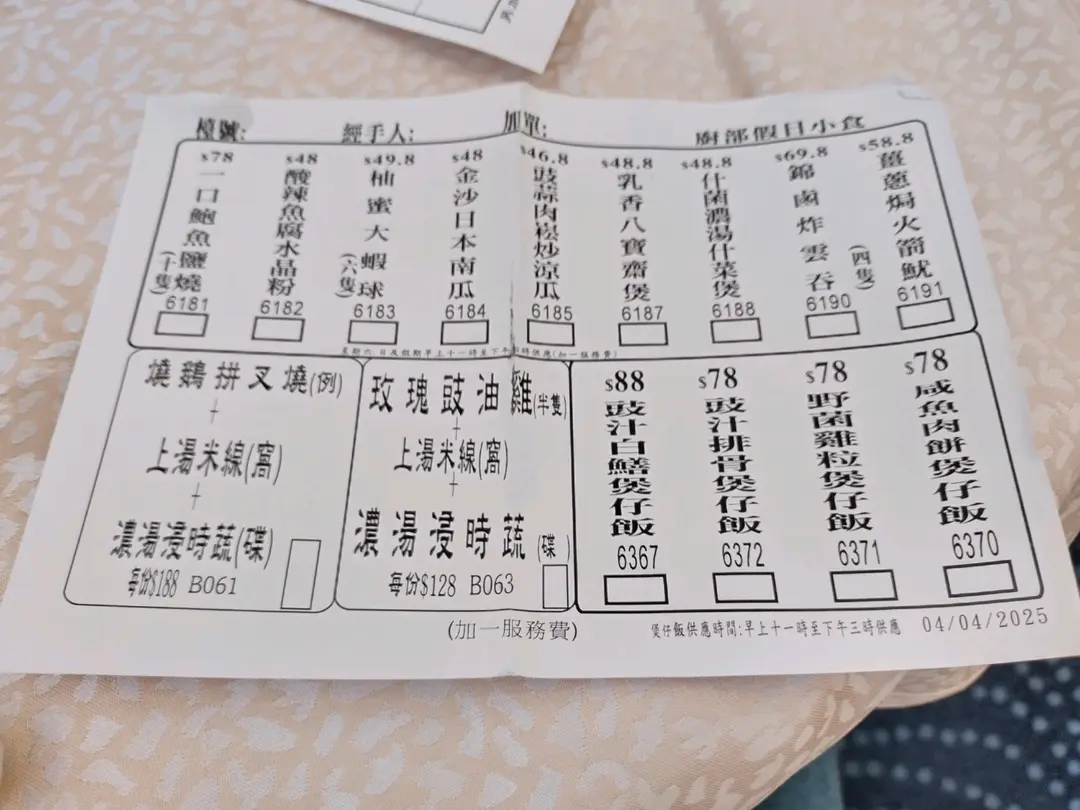 檯號:
經手人:
加單:
廚部假日小食
$78
一口鮑魚鹽燒
(十隻)
6181
$48
酸辣魚腐水晶粉
6182
$49.8
柚蜜大蝦球
(六隻)
6183
$48
金沙日本南瓜
6184
$46.8
豉蒜肉崧炒涼瓜
6185
$48.8
乳香八寶齋煲
6187
$48.8
什菌濃湯什菜煲
6188
$69.8
錦鹵炸雲吞
6190
$58.8
薑蔥焗火箭魷
(四隻)
6191
星期六,日及假期早上十一時至下午 時供應(加一服務費)
燒鵝拼叉燒(例)
+
上湯米線(窩)
+
濃湯浸時蔬(碟)
每份$188 B061
玫瑰豉油雞(半隻)
+
上湯米線(窩)
+
濃湯浸時蔬(碟)
每份$128 B063
$88
豉汁白鱔煲仔飯
6367
$78
豉汁排骨煲仔飯
6372
$78
野菌雞粒煲仔飯
6371
$78
咸魚肉餅煲仔飯
6370
(加一服務費)
煲仔飯供應時間:早上十一時至下午三時供應
04/04/2025